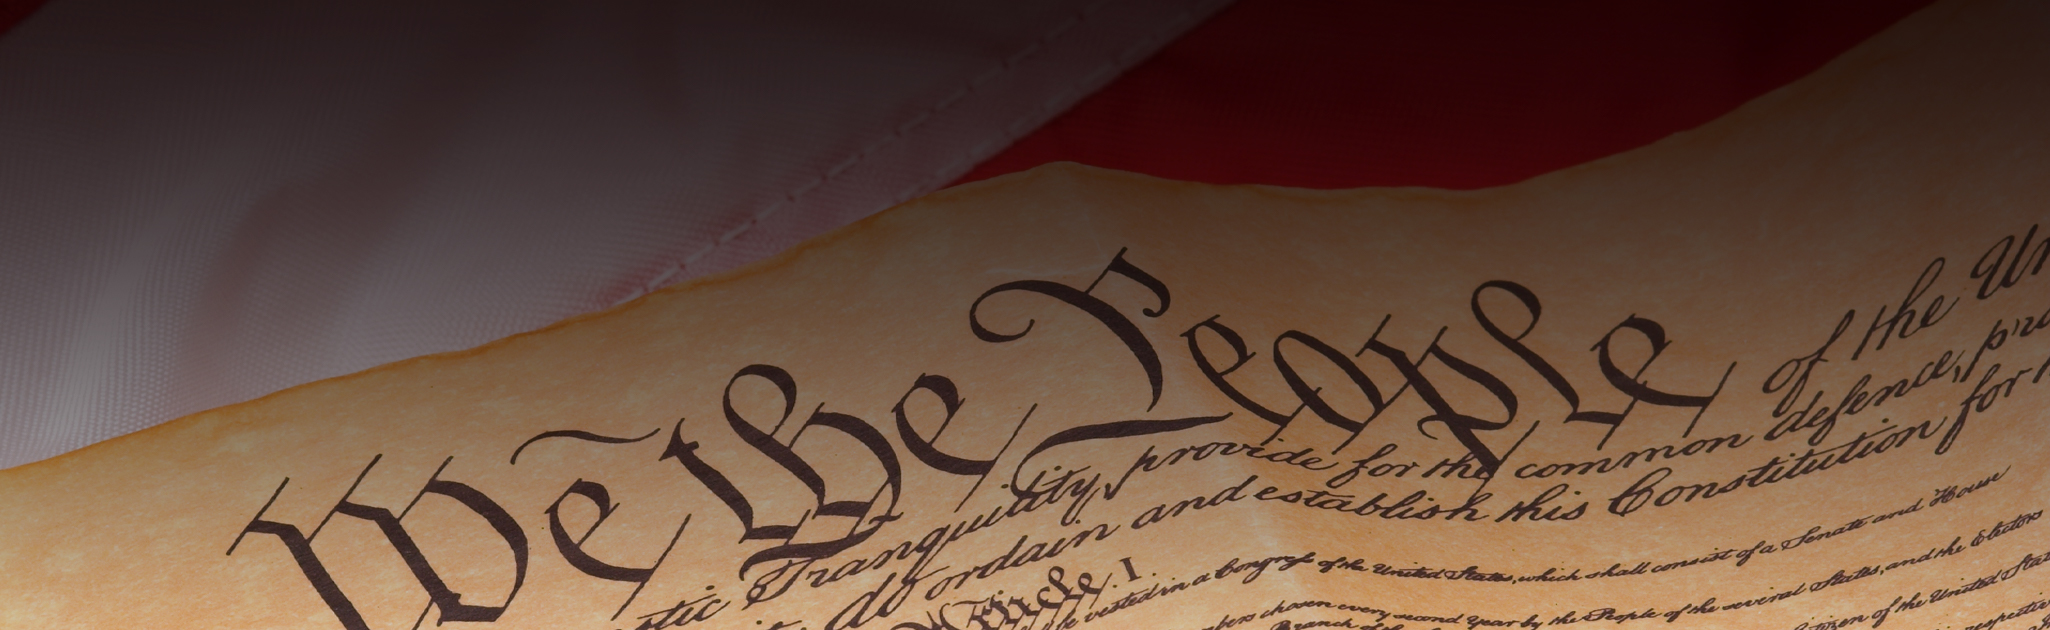 We the People of the Un
stic Tranquility, provide for the common defence, pro
do ordain and establish this Constitution for
Article. I.
be vested in a Congress of the United States, which shall consist of a Senate and House
bers chosen every second Year by the People of the several States, and the Electors
Branch of the
Citizen of the United Stat
respectiv